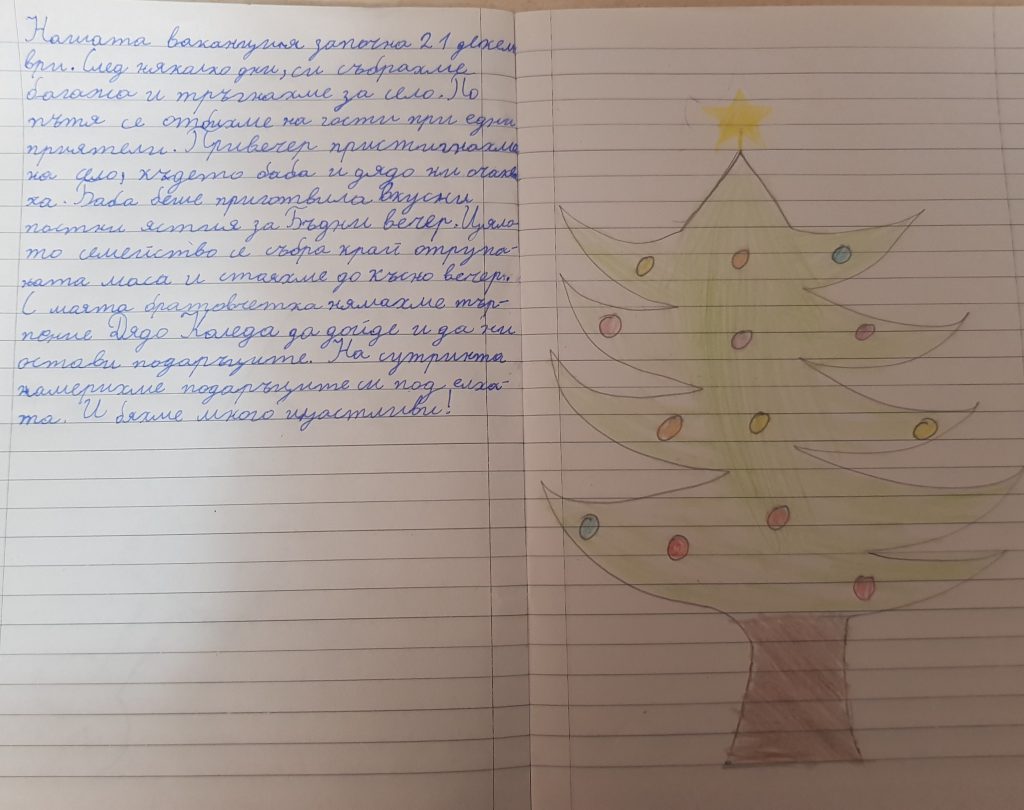 Нашата ваканция започна 21 декем
ври. След няколко дни, си събрахме
багажа и тръгнахме за село. По
пътя се отбихме на гости при едни
приятели. Привечер пристигнахме
на село, където баба и дядо ни очаква
ха. Баба беше приготвила вкусни
постни ястия за Бъдни вечер. Цяло
то семейство се събра край отрупа-
ната маса и стояхме до късно вечер.
С моята братовчетка нямахме тър-
пение Дядо Коледа да дойде и да ни
остави подаръците. На сутринта
намерихме подаръците си под елха-
та. И бяхме много щастливи!